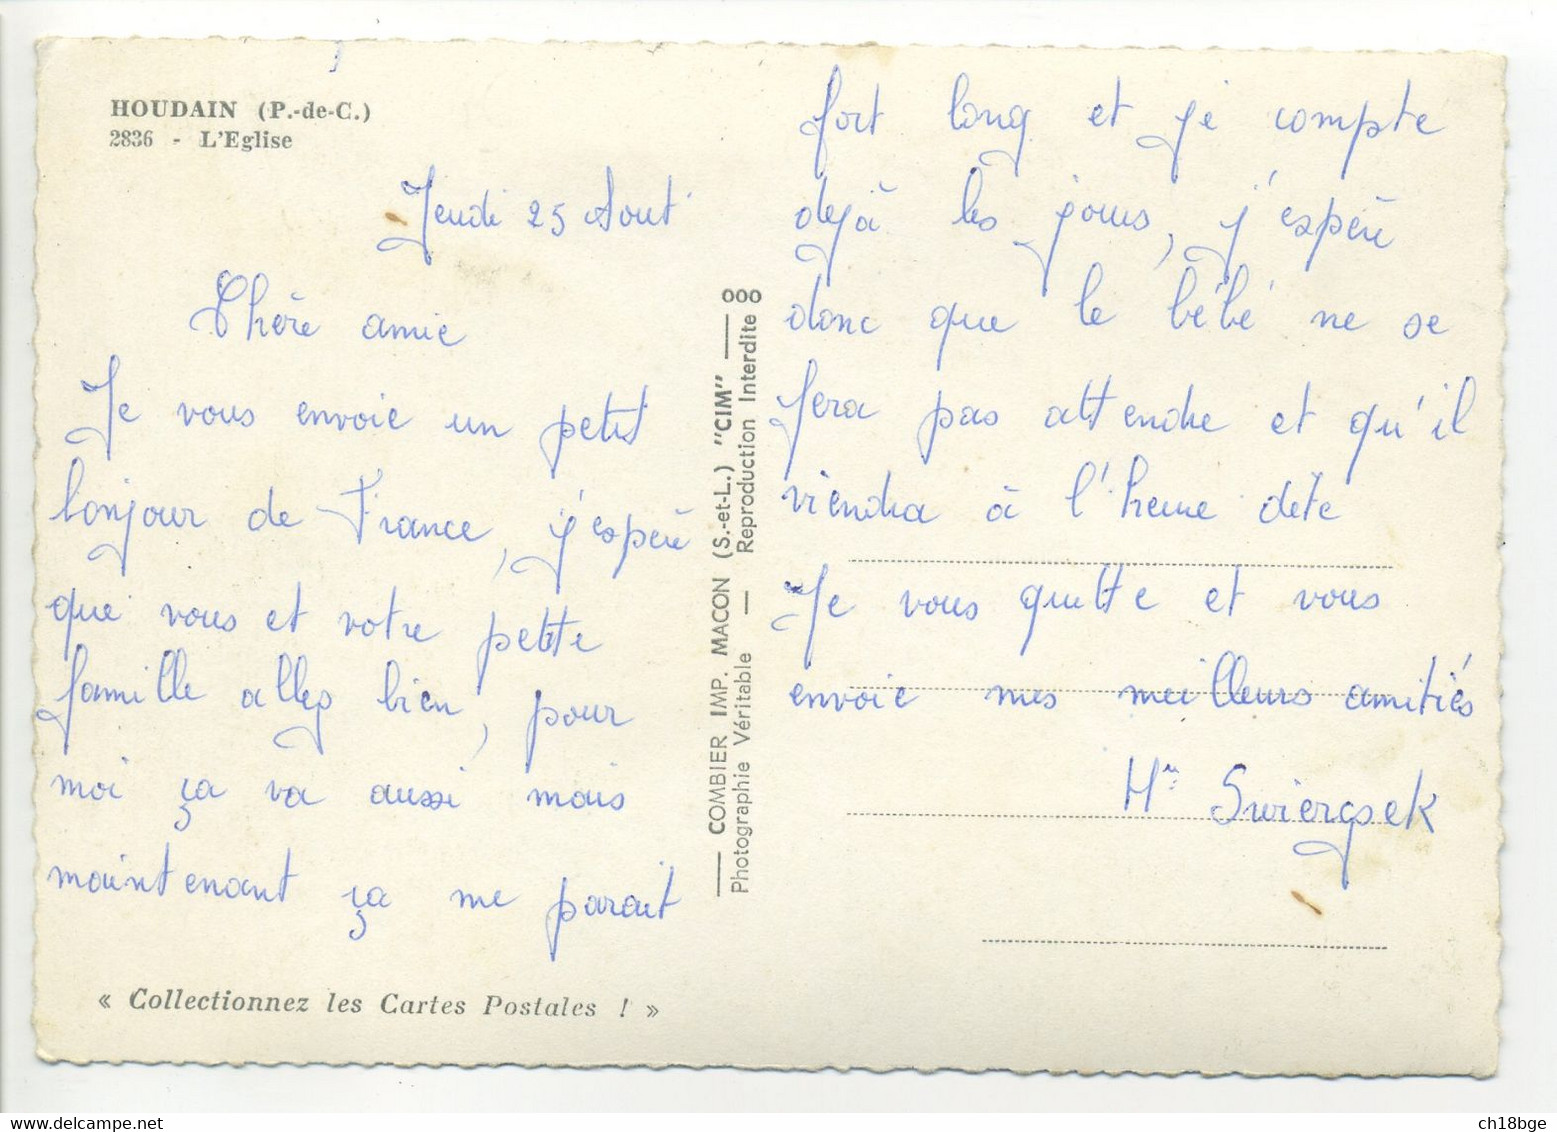 HOUDAIN (P.-de-C.)
2836 - L'Eglise
Jeudi 25 Aout
Chère amie
Je vous envoie un petit
bonjour de France, j'espère
que vous et votre petite
famille allez bien, pour
moi ça va aussi mais
maintenant ça me parait
« Collectionnez les Cartes Postales ! »
COMBIER IMP. MACON (S.-et-L.) "CIM"
Photographie Véritable — Reproduction Interdite
fort long et je compte
dejà les jours, j'espère
donc que le bébé ne se
fera pas attendre et qu'il
viendra à l'heure dete
Je vous quitte et vous
envoie mes meilleurs amitiés
Swierczek
ch18bge